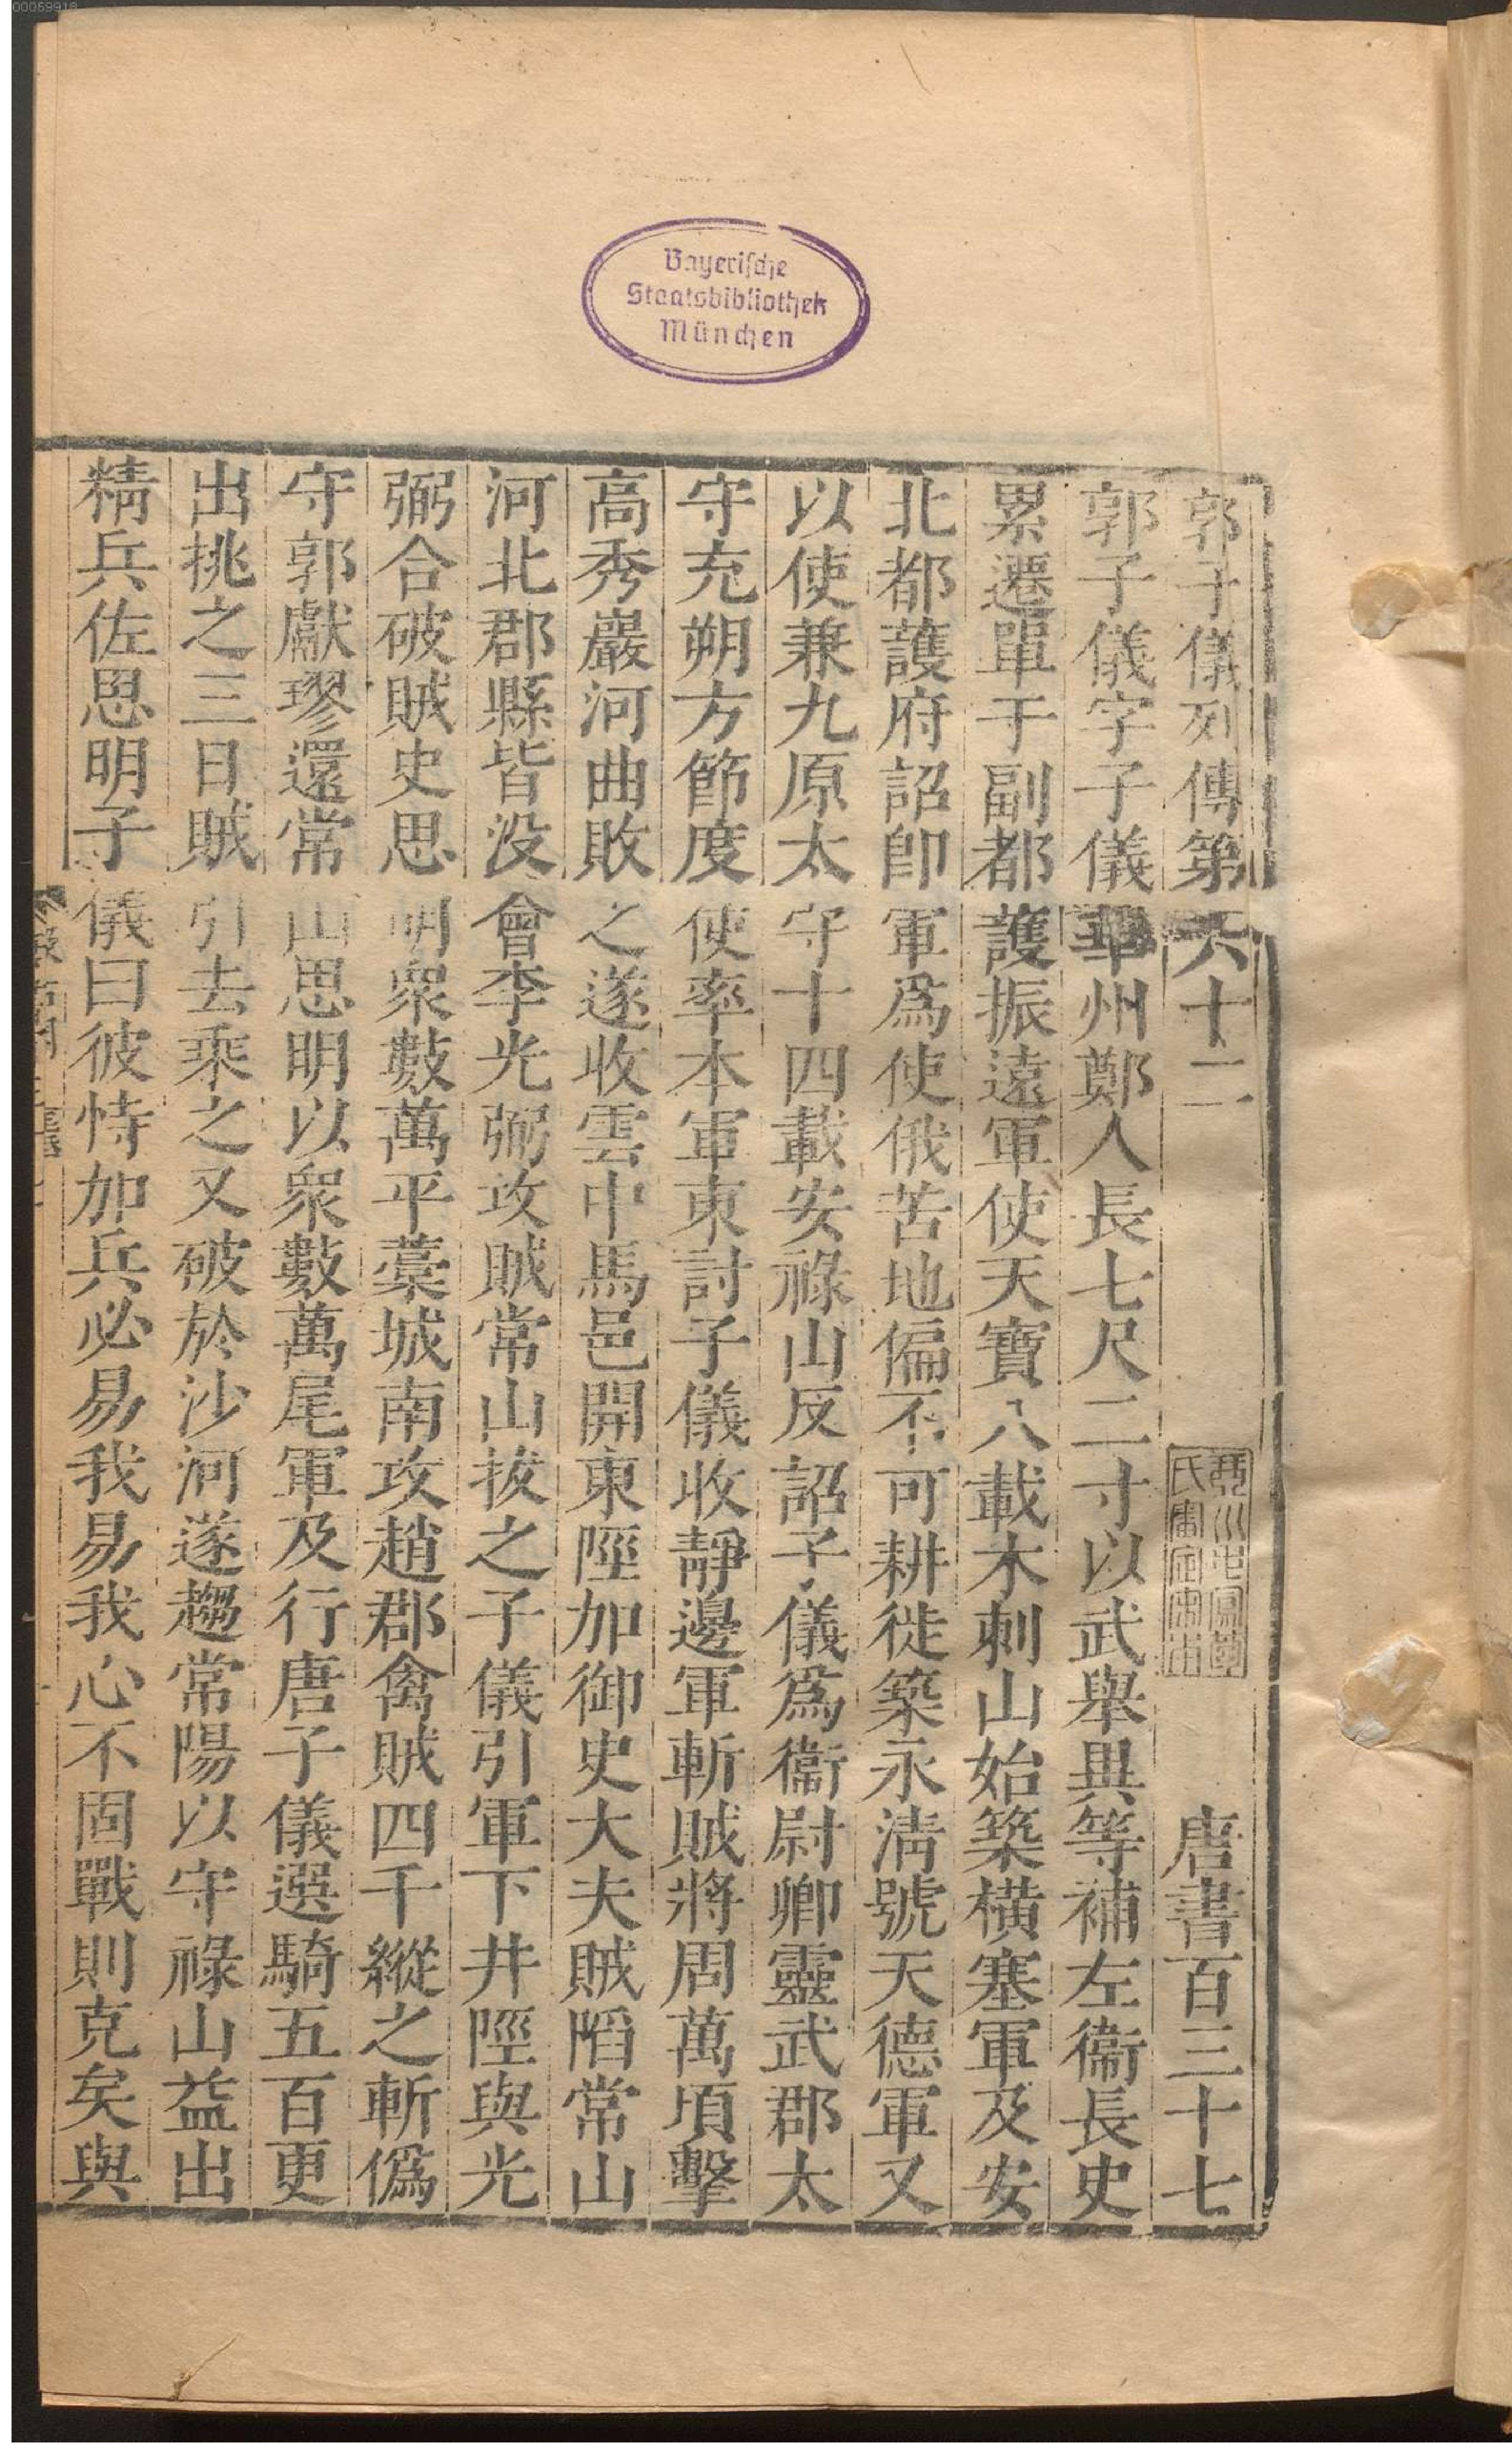 00059918
Bayerische
Staatsbibliothek
München
郭子儀列傳第六十二 唐書百三十七
郭子儀字子儀華州鄭人長七尺二寸以武舉異等補左衞長史
累遷單于副都護振遠軍使天寶八載木剌山始築橫塞軍及安
北都護府詔卽軍爲使俄苦地偏不可耕徙築永淸號天德軍又
以使兼九原太守十四載安祿山反詔子儀爲衞尉卿靈武郡太
守充朔方節度使率本軍東討子儀收靜邊軍斬賊將周萬頃擊
高秀巖河曲敗之遂收雲中馬邑開東陘加御史大夫賊陷常山
河北郡縣皆没會李光弼攻賊常山拔之子儀引軍下井陘與光
弼合破賊史思明衆數萬平藁城南攻趙郡禽賊四千縱之斬僞
守郭獻璆還常山思明以衆數萬尾軍及行唐子儀選騎五百更
出挑之三日賊引去乘之又破於沙河遂趨常陽以守祿山益出
精兵佐思明子儀曰彼恃加兵必易我易我心不固戰則克矣與